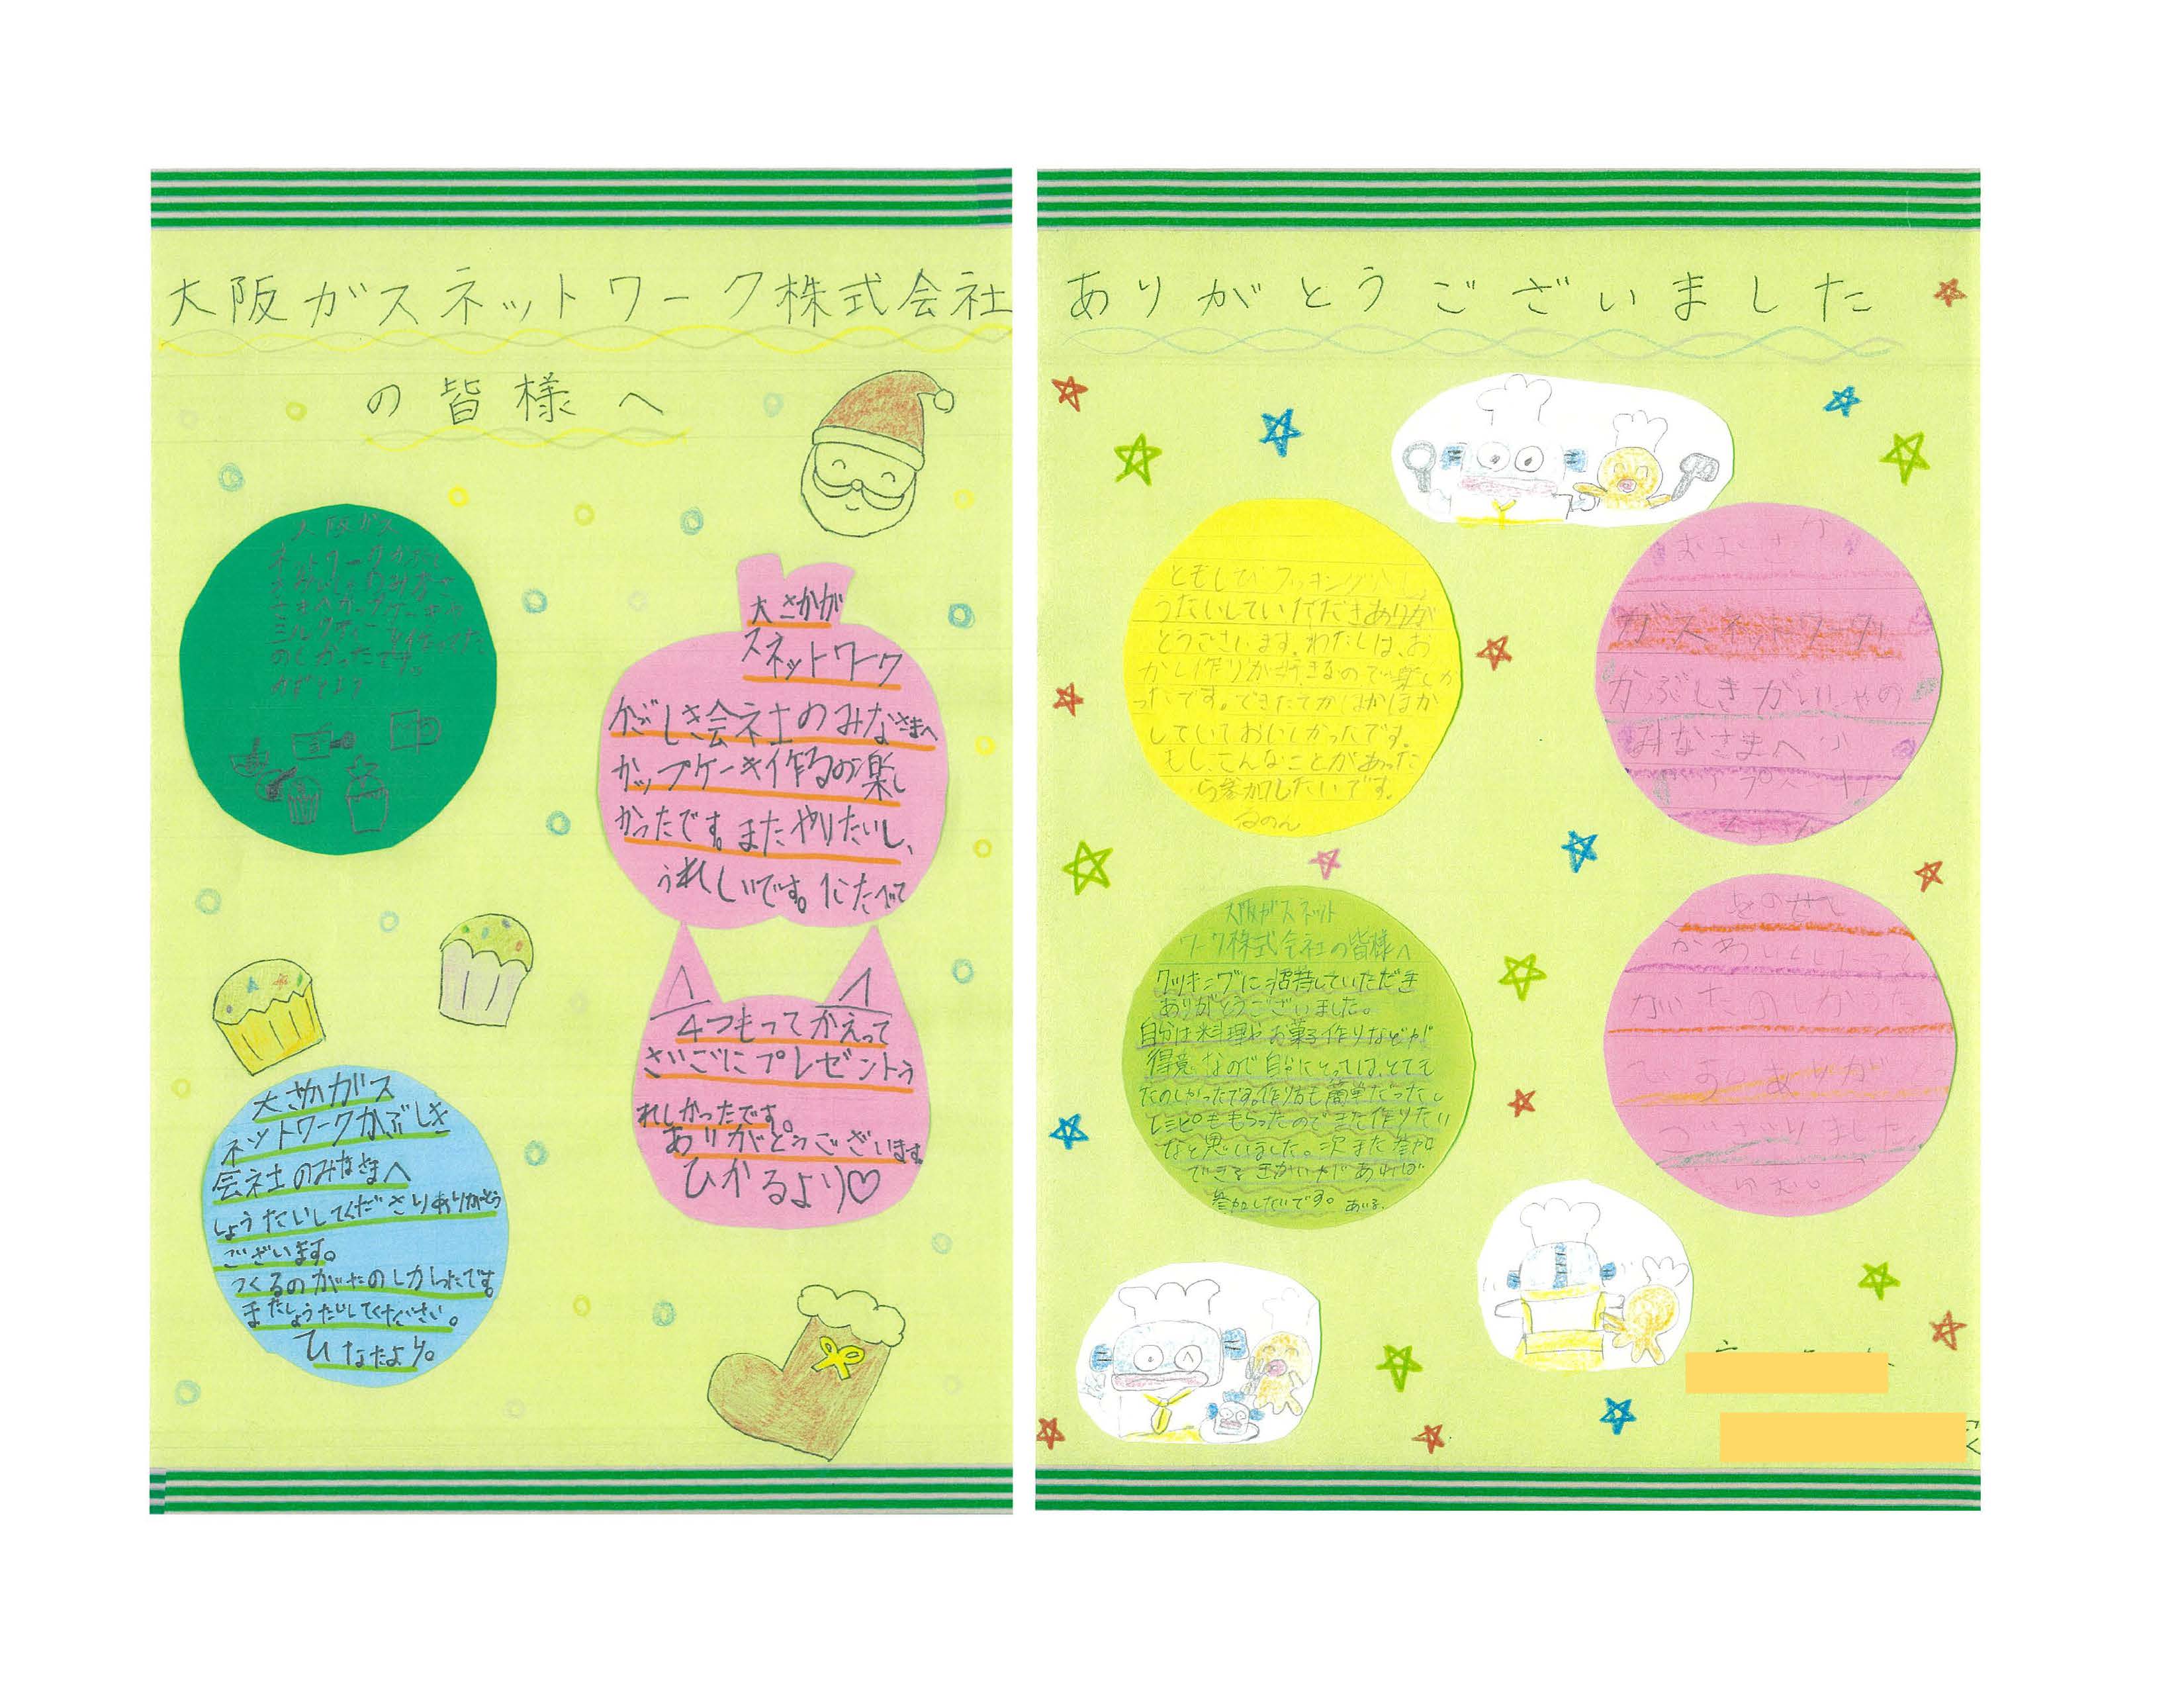 大阪ガスネットワーク株式会社
の皆様へ
大阪ガス
ネットワークかぶし
ミルクティーを作ってた
のしかったです。
大さかガ
スネットワーク
かぶしき会社のみなさまへ
カップケーキ作るの楽し
かったです。またやりたいし、
うれしいです。1こたべて
4つもってかえって
さいごにプレゼントう
れしかったです。
ありがとうございます。
ひかるより♡
大さかガス
ネットワークかぶしき
会社のみなさまへ
しょうたいしてくださりありがとう
ございます。
つくるのがたのしかったです。
またしょうたいしてください。
ひなたより。
ありがとうございました
ともしびクッキングへしょ
うたいしていただきありが
とうございます。わたしは、お
かし作りが好きなので楽しか
ったです。できたてがほかほか
していておいしかったです。
もし、こんなことがあった
ら参加したいです。
るのん
おおさか
ガスネットワーク
かぶしきがいしゃの
みなさまへ
大阪ガスネット
ワーク株式会社の皆様へ
クッキングに招待していただき
ありがとうございました。
自分は料理やお菓子作りなどが
得意なので自分にとってはとても
たのしかったです。作り方も簡単だったし
レシピももらったのでまた作りたい
なと思いました。次また参加
できるきかいがあれば
参加したいです。あいる。
をのせて
かわいくしたこと
がたのしかった
です。ありが
とうございました。